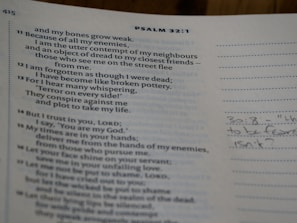 415
PSALM 32:1
and my bones grow weak.
11 Because of all my enemies,
I am the utter contempt of my neighbours
and an object of dread to my closest friends –
those who see me on the street flee
from me.
12 I am forgotten as though I were dead;
I have become like broken pottery.
13 For I hear many whispering,
"Terror on every side!"
They conspire against me
and plot to take my life.
14 But I trust in you, LORD;
I say, "You are my God."
15 My times are in your hands;
deliver me from the hands of my enemies,
from those who pursue me.
16 Let your face shine on your servant;
save me in your unfailing love.
17 Let me not be put to shame, LORD,
for I have cried out to you;
but let the wicked be put to shame
and be silent in the realm of the dead.
18 Let their lying lips be silenced,
for with pride and contempt
they speak arrogantly against the
30:8 -
to be
isn't?